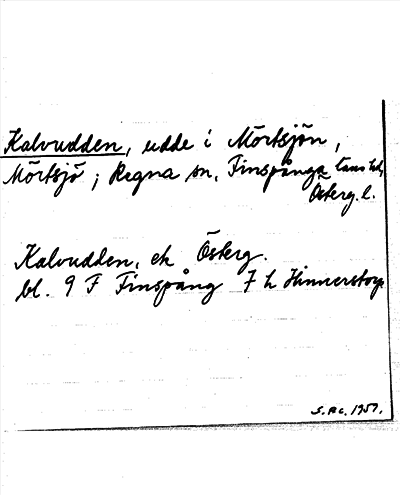 Kalvudden, udde i Mörtsjön,
Mörtsjö; Regna sn, Finspånga
Österg. l.
Kalvudden, ek Österg.
bl. 9 F Finspång 7 h Hinnerstorp
1957.